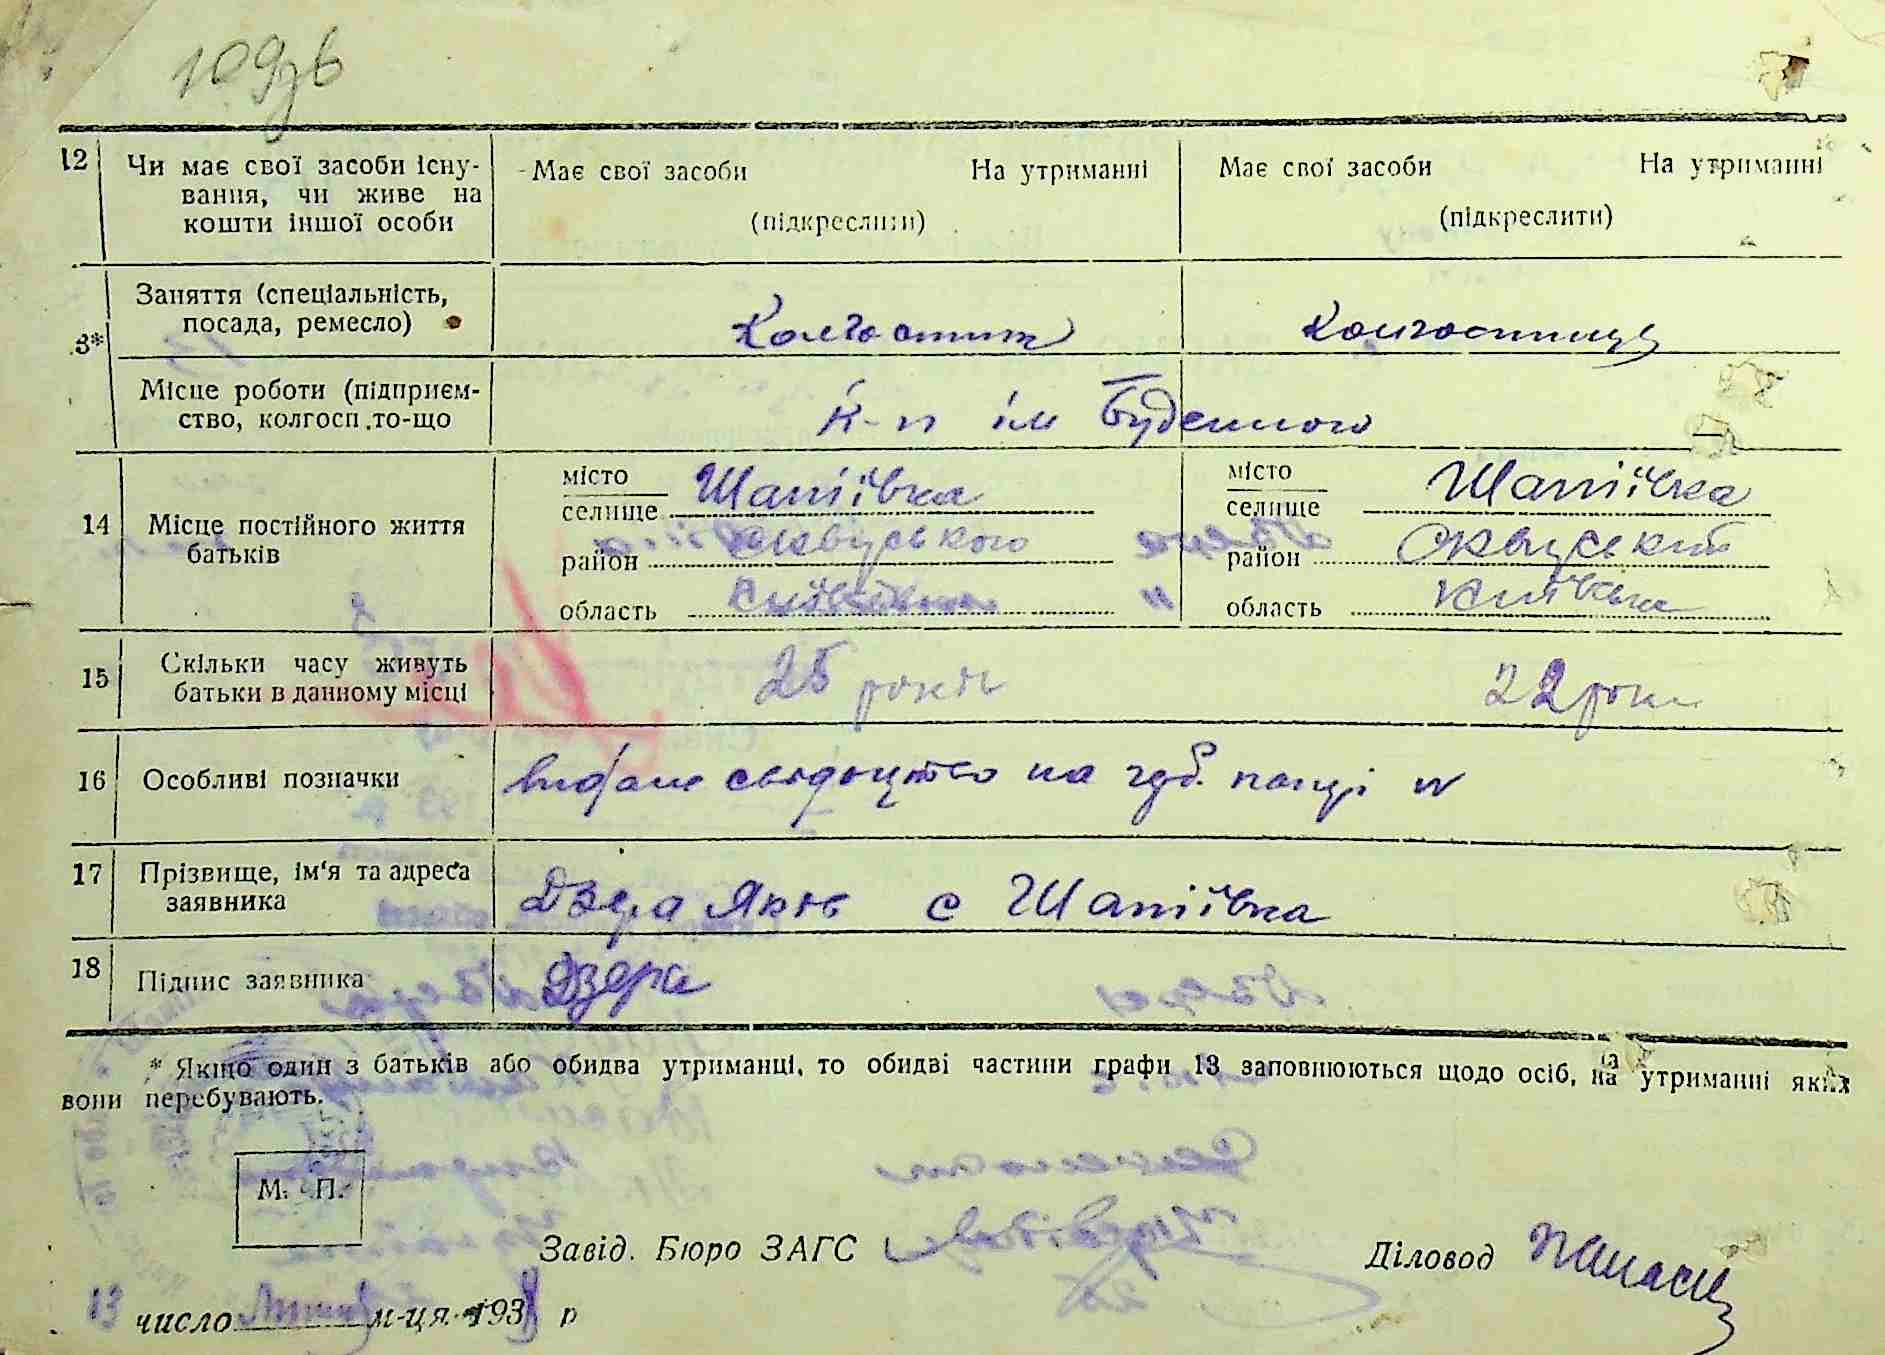 109зв
12 Чи має свої засоби існу- Має свої засоби На утриманні Має свої засоби На утриманні
вання, чи живе на
кошти іншої особи (підкреслити) (підкреслити)
Заняття (спеціальність,
посада, ремесло) Колгоспник Колгоспниця
3*
Місце роботи (підприєм-
ство, колгосп то-що к-п ім Буденного —
місто Шапіївка місто Шапіївка
селище селище
14 Місце постійного життя
батьків
район Сквирського район Сквирський
область Київська область Київська
15 Скільки часу живуть 25 років 22 роки
батьки в данному місці
16 Особливі позначки видане свідоцтво на
17 Прізвище, ім'я та адреса
заявника Дзера Яків с Шапіївка
18 Підпис заявника Дзера
* Якщо один з батьків або обидва утриманці, то обидві частини графи 13 заповнюються щодо осіб, на утриманні яких
вони перебувають.
М. П.
Завід. Бюро ЗАГС Діловод
13 число м-ця 1938 р